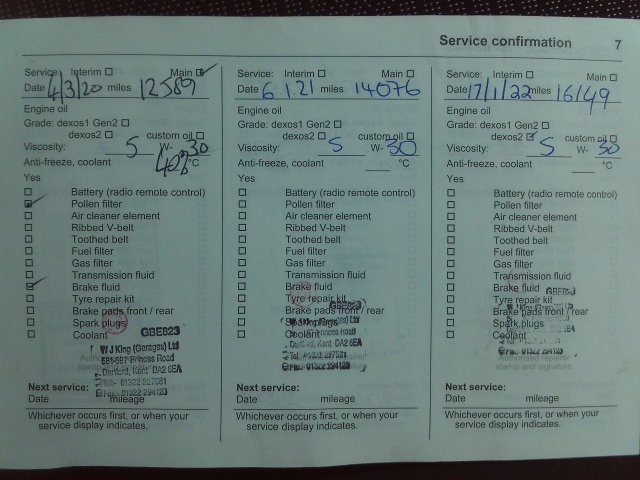 Service confirmation 7
Service: Interim Main
Date 4/3/20 miles 12589
Engine oil
Grade: dexos1 Gen2
dexos2 custom oil
Viscosity: 5 W- 30
Anti-freeze, coolant 40 °C
Yes
Battery (radio remote control)
Pollen filter
Air cleaner element
Ribbed V-belt
Toothed belt
Fuel filter
Gas filter
Transmission fluid
Brake fluid
Tyre repair kit
Brake pads front / rear
Spark plugs
Coolant
GBE823
W J King (Garages) Ltd
581-597 Princes Road
Dartford, Kent DA2 6EA
Tel:- 01322 227581
Fax:- 01322 294123
Next service:
Date mileage
Whichever occurs first, or when your
service display indicates.
Service: Interim Main
Date 6.1.21 miles 14076
Engine oil
Grade: dexos1 Gen2
dexos2 custom oil
Viscosity: 5 W- 30
Anti-freeze, coolant °C
Yes
Battery (radio remote control)
Pollen filter
Air cleaner element
Ribbed V-belt
Toothed belt
Fuel filter
Gas filter
Transmission fluid
Brake fluid
Tyre repair kit
Brake pads front / rear
Spark plugs
Coolant
GBE823
W J King (Garages) Ltd
Princes Road
Dartford, Kent DA2 6EA
Tel: 01322 227581
Fax: 01322 294123
Next service:
Date mileage
Whichever occurs first, or when your
service display indicates.
Service: Interim Main
Date 17/1/22 miles 16149
Engine oil
Grade: dexos1 Gen2
dexos2 custom oil
Viscosity: 5 W- 30
Anti-freeze, coolant °C
Yes
Battery (radio remote control)
Pollen filter
Air cleaner element
Ribbed V-belt
Toothed belt
Fuel filter
Gas filter
Transmission fluid
Brake fluid
Tyre repair kit
Brake pads front / rear
Spark plugs
Coolant
Authorised repairer
stamp and signature
Next service:
Date mileage
Whichever occurs first, or when your
service display indicates.